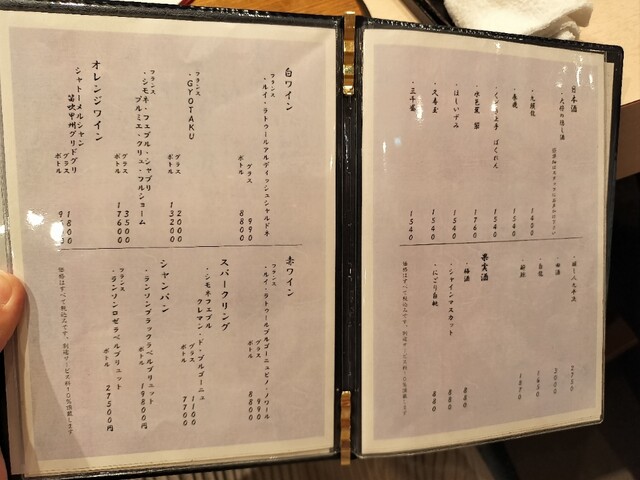 日本酒
・大将の隠し酒
1400
1540
・くどき上手 ばくれん
1540
・水芭蕉 翠
1760
・ほしいずみ
1540
・久寿玉
1540
・三千盛
1540
2750
2000
1650
1870
果実酒
・梅酒
880
・シャインマスカット
880
・にごり白桃
880
価格はすべて税込みです。別途サービス料10%頂戴します
白ワイン
フランス
・ルイ・ラトゥールアルディッシュシャルドネ
グラス 990
ボトル 8800
フランス
・GYOTAKU
グラス 2000
ボトル 13200
フランス
・シモネ・フェブル・シャブリ
プルミエ・クリュ・フルショーム
グラス 3500
ボトル 17600
オレンジワイン
シャトーメルシャン
笛吹甲州グリドグリ
グラス 1800
ボトル
赤ワイン
フランス
・ルイ・ラトゥールブルゴーニュピノ・ノワール
グラス 990
ボトル 8800
スパークリング
・シモネフェブル
クレマン・ド・ブルゴーニュ
グラス 1100
ボトル 7700
シャンパン
フランス
・ランソンブラックラベルブリュット
ボトル 19800円
フランス
・ランソンロゼラベルブリュット
ボトル 27500円
価格はすべて税込みです。別途サービス料10%頂戴します